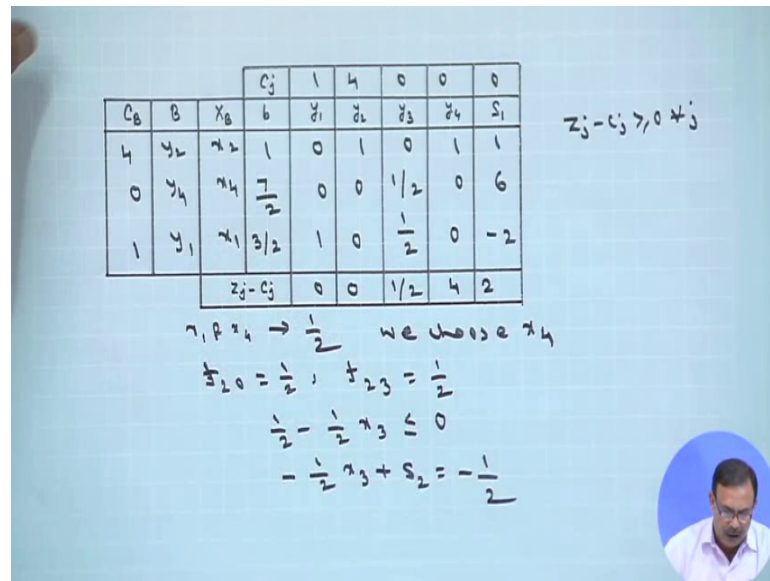 Cj 1 4 0 0 0
CB B XB b y1 y2 y3 y4 S1
4 y2 x2 1 0 1 0 1 1
0 y4 x4 7/2 0 0 1/2 0 6
1 y1 x1 3/2 1 0 1/2 0 -2
Zj - Cj 0 0 1/2 4 2
Zj - Cj ≥, 0 ∀ j
x1 & x4 → 1/2 we choose x4
f20 = 1/2, f23 = 1/2
1/2 - 1/2 x3 ≤ 0
- 1/2 x3 + S2 = - 1/2